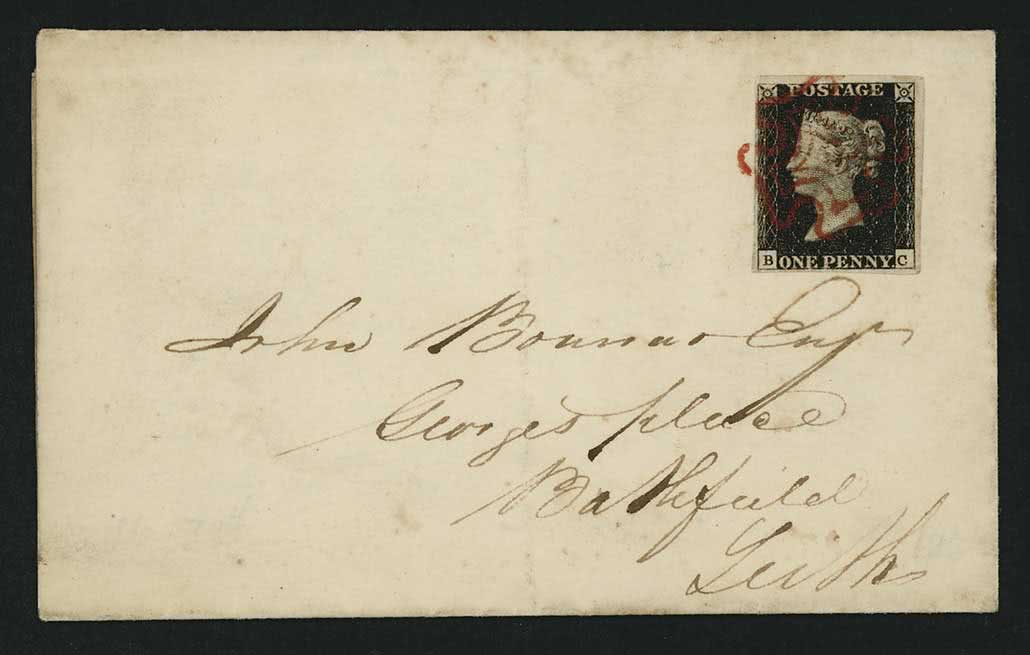 POSTAGE
B ONE PENNY. C
John Bonnar Esqr
Georges place
Bathfield
Leith